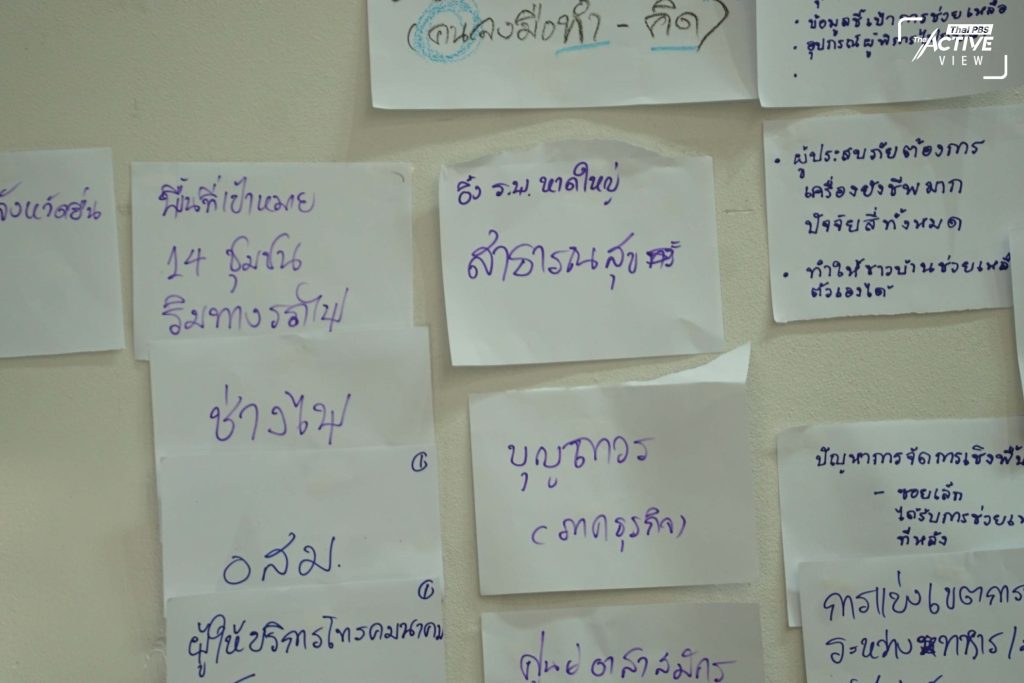 (คนลงมือทำ - คิด)
• ข้อมูลชี้เป้าการช่วยเหลือ
• อุปกรณ์ผู้พิการ
The
Thai PBS
ACTIVE
VIEW
จังหวัดอื่น
พื้นที่เป้าหมาย
14 ชุมชน
ริมทางรถไฟ
ช่างไฟ
①
อสม.
①
ผู้ให้บริการโทรคมนาคม
ร.พ. หาดใหญ่
สาธารณสุข
บุญถาวร
(ภาคธุรกิจ)
ศูนย์อาสาสมัคร
• ผู้ประสบภัยต้องการ
เครื่องยังชีพมาก
ปัจจัยสี่ทั้งหมด
• ทำให้ชาวบ้านช่วยเหลื
ตัวเองได้
ปัญหาการจัดการเชิงพื้น
- ซอยเล็ก
ได้รับการช่วยเห
ที่หลัง
การแบ่งเขตการ
ระหว่าง ทหาร/